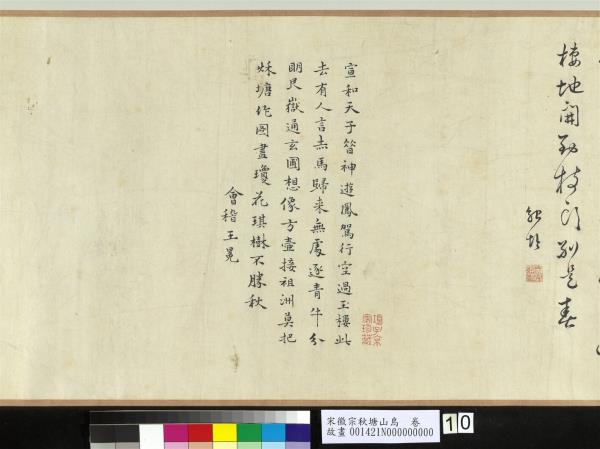 棲地開勁枝
別是春
項子京
家珍藏
宣和天子昔神遊鳳駕行空過玉樓此
去有人言赤馬歸來無處逐青牛分
明艮嶽通玄圃想像方壺接祖洲莫把
秌塘作圖畫瓊花琪樹不勝秋
會稽王冕
宋徽宗秋塘山鳥　卷
故畫 001421N000000000
10